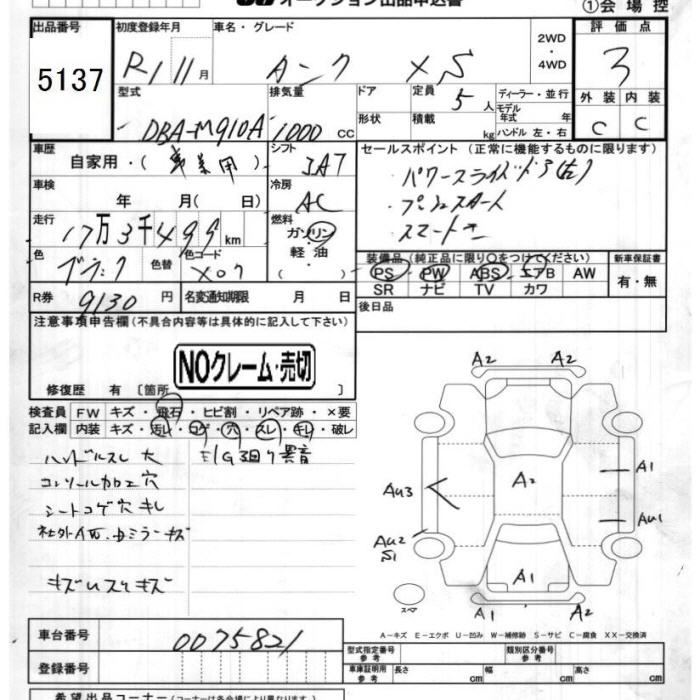 オークション出品申込書
①会場控
出品番号
5137
初度登録年月
R1 11月
車名・グレード
タンク XS
2WD
・
4WD
評価点
3
外装 内装
C C
型式
DBA-M910A
排気量
1000 CC
ドア
形状
定員 5人
積載 kg
ディーラー・並行
モデル年式 年
ハンドル 左・右
車歴
自家用・(事業用)
シフト
IAT
セールスポイント (正常に機能するものに限ります)
・パワースライドドア(左)
・プッシュスタート
・スマートキー
車検
年 月(日)
冷房
AC
走行
17万3千499km
燃料
ガソリン
・
軽油
( )
色
ブラック
色替
色コード
X07
装備品 (純正品に限り○をつけてください)
PS PW ABS エアB AW
SR ナビ TV カワ
新車保証書
有・無
R券
9130円
名変通知期限 月 日
後日品
注意事項申告欄(不具合内容等は具体的に記入して下さい)
NOクレーム・売切
修復歴 有 [箇所 ]
検査員 FW キズ・飛石・ヒビ割・リペア跡・×要
記入欄 内装 キズ・汚レ・コゲ・穴・スレ・キレ・破レ
ハンドルスレ大 E/G回り異音
コンソール加工穴
シートコゲ穴キレ
キズUスリキズ
A2 A2
A2
Au3
A1
Au1
Au2
S1
A1
A1 A2
スペア
A-キズ E-エクボ U-凹み W-補修跡 S-サビ C-腐食 XX-交換済
車台番号
0075821
登録番号
型式指定番号
参考
類別区分番号
参考
車庫証明用
参考
長さ cm 幅 cm 高さ cm
希望出品コーナー(コーナーは各会場により異なります)